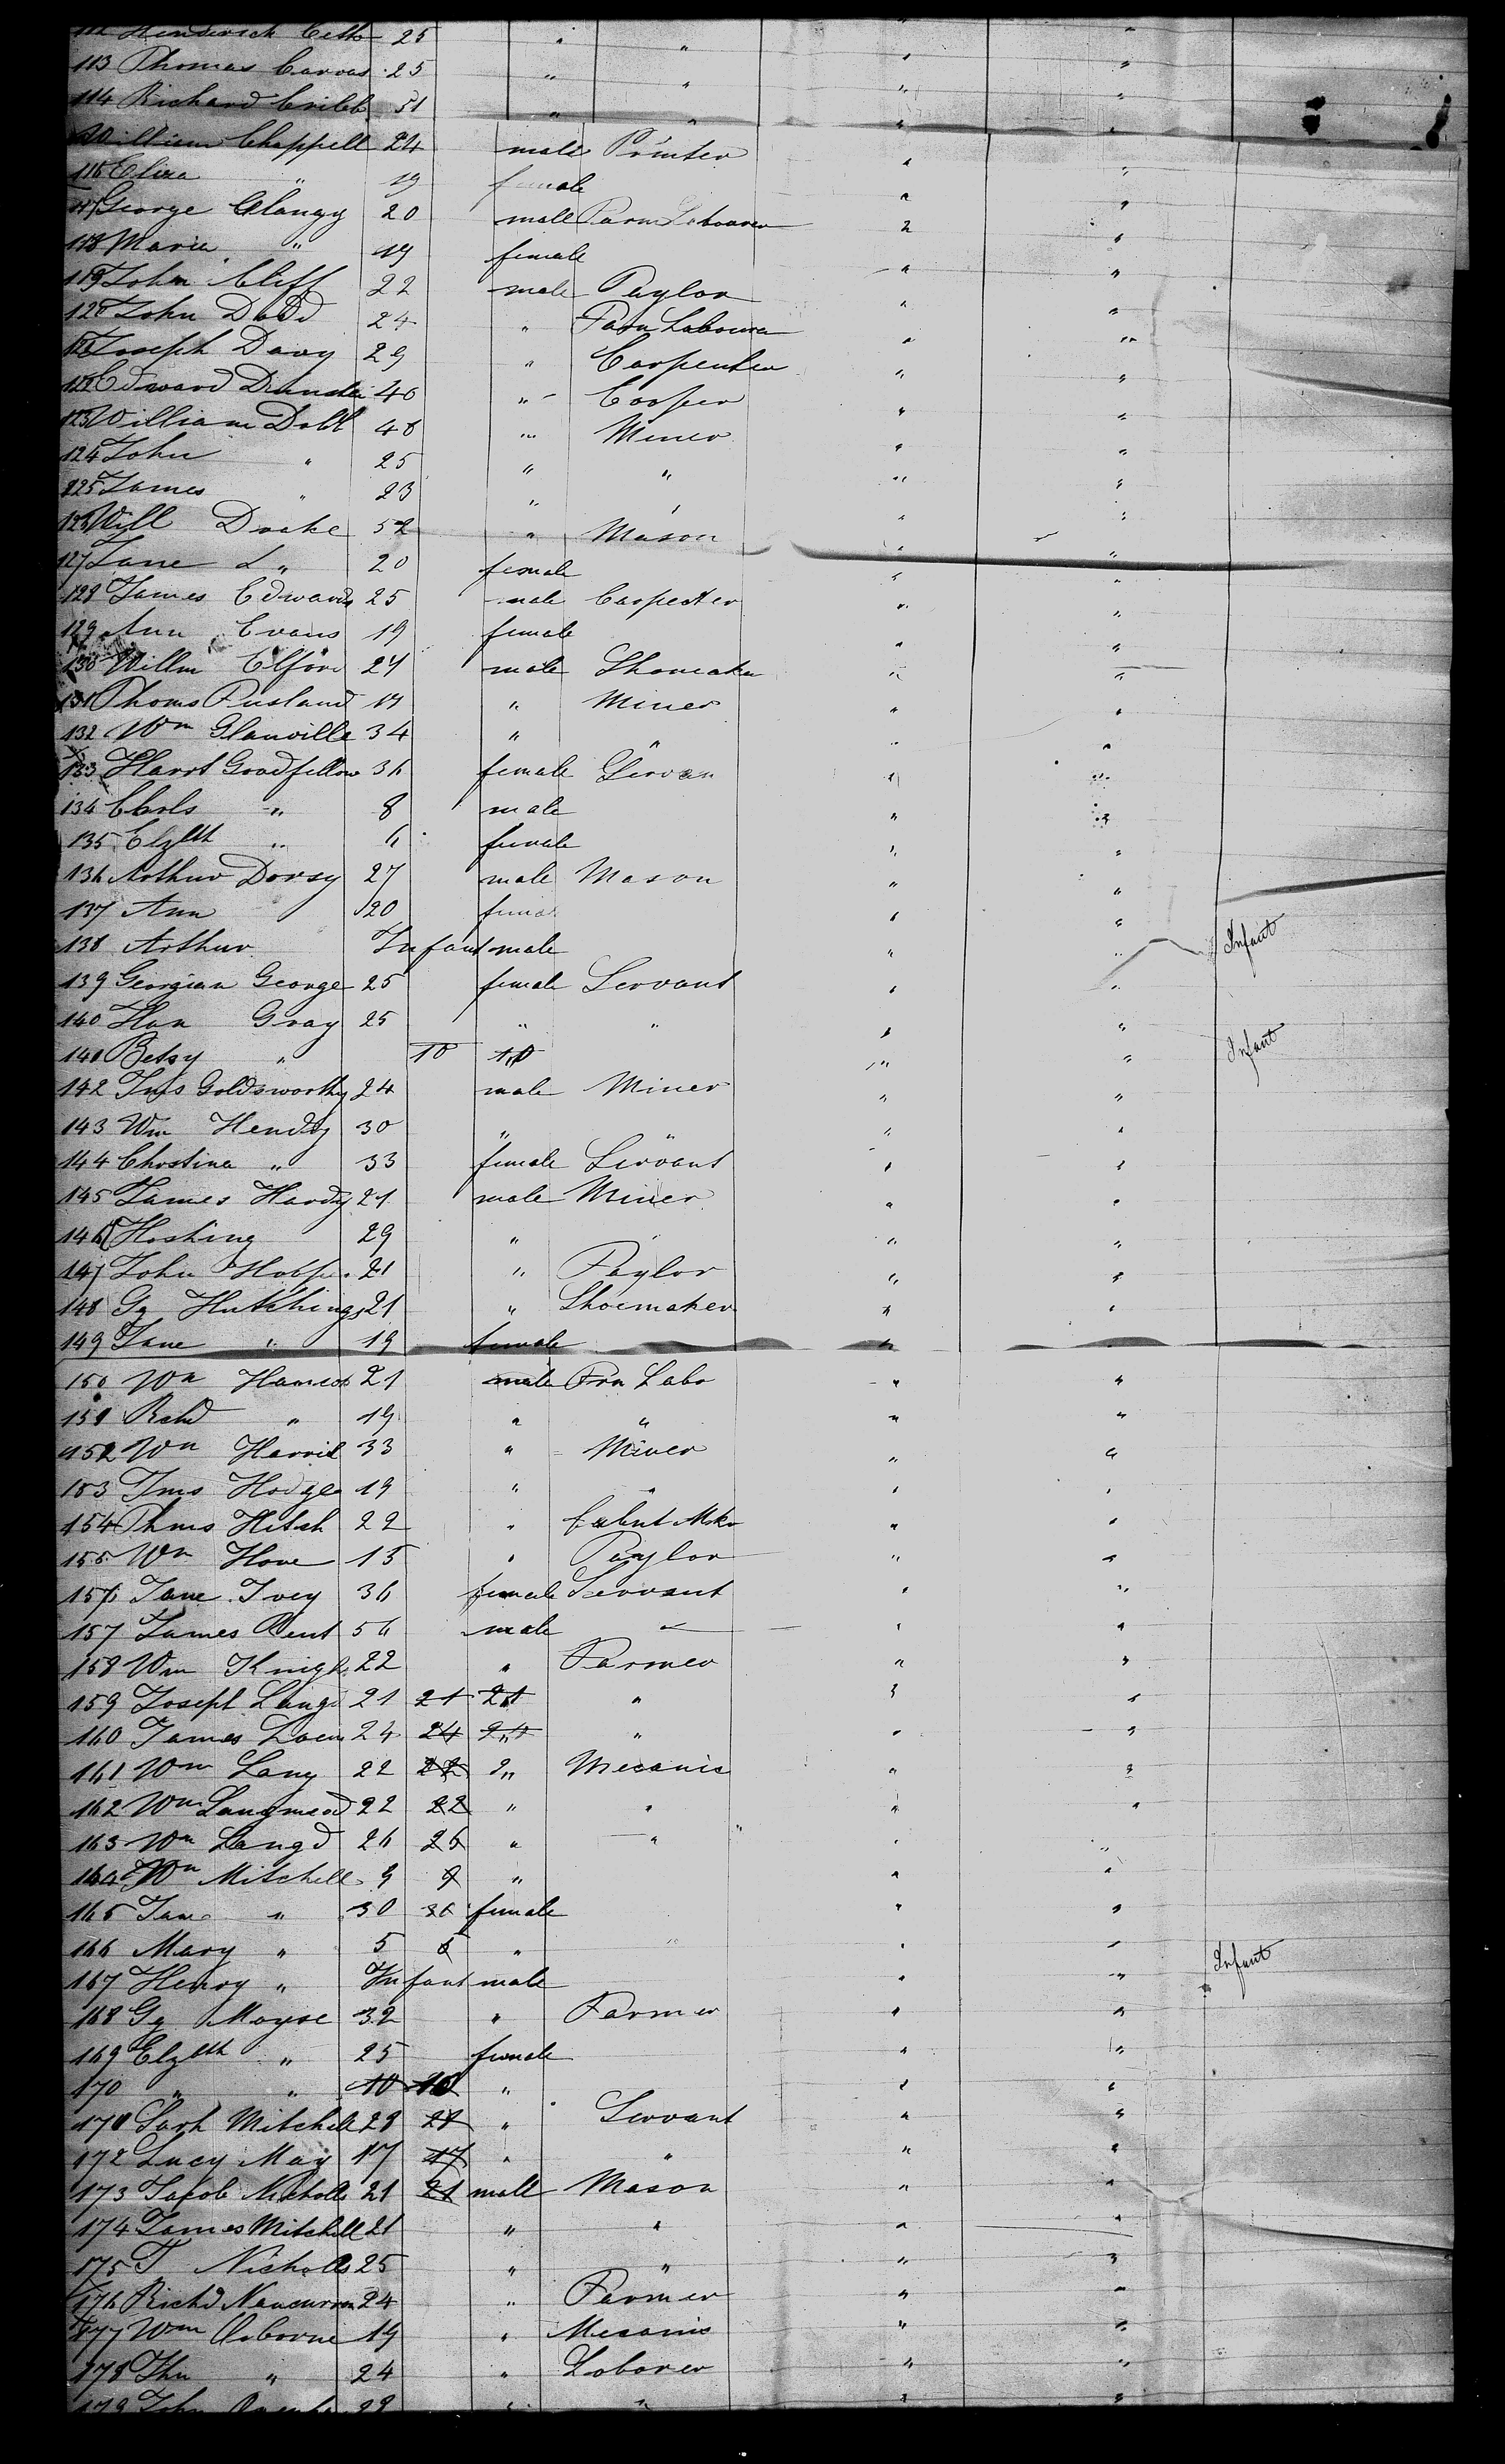 112 25 " " " "
113 Thomas Carvas 25 " " " "
114 Richard 51 " " " "
William Chappell 24 male Printer " "
116 Eliza " 19 female " "
117 George Clangy 20 male Farm Labourer " "
118 Maria " 19 female " "
119 John Cliff 22 male Taylor " "
120 John Dodd 24 " Farm Laboura " "
121 Joseph Davy 29 " Carpenter " "
122 Edward 40 " - Cooper " "
123 William Dobb 48 " Miner " "
124 John " 25 " " " "
125 James " 23 " " " "
126 Will Drake 52 " Mason " "
127 Jane " 20 female " "
128 James Edwards 25 male Carpenter " "
129 Ann Evans 19 female " "
130 Willm 24 male Shomaker " "
131 Thoms 19 " Miner " "
132 Wm Glanville 34 " " " "
133 Harrt Goodfellow 36 female Servan " "
134 Chrls " 8 male " "
135 Elzbth " 6 female " "
136 Arthur Dorsy 27 male Mason " "
137 Ann 20 female " "
138 Arthur Infant male " " Infant
139 Georgian George 25 female Servant " "
140 Han Gray 25 " " " "
141 Betsy " 10 10 " " Infant
142 Jms Goldsworthy 24 male Miner " "
143 Wm Hendy 30 " " " "
144 Chrstina " 33 female Servant " "
145 James Hardy 21 male Miner " "
146 Hosking 29 " " " "
147 John 21 " Taylor " "
148 Gg Hutchings 21 " Shoemaker " "
149 Jane " 19 female " "
150 Wm 21 male Frm Labo " "
151 Rchd " 19 " " " "
152 Wm Harris 33 " Miner " "
153 Jms Hodge 19 " " " "
154 Thms Hitch 22 " Cabnt Mkr " "
155 Wm Hove 15 " Taylor " "
156 Jane Ivey 36 female Servant " "
157 James Kent 56 male " " "
158 Wm Knigh 22 " Farmer " "
159 Joseph Lang 21 21 21 " " "
160 James 24 24 24 " " "
161 Wm Lang 22 22 " Mecanic " "
162 Wm Langmead 22 22 " " " "
163 Wm Langd 26 26 " " " "
164 Wm Mitchell 9 9 " " "
165 Jane " 30 30 female " "
166 Mary " 5 5 " " "
167 Henry " Infant male " " Infant
168 Gg Moyse 32 " Farmer " "
169 Elzbth " 25 female " "
170 " " 10 10 " " "
171 Sarh Mitchell 29 29 " Servant " "
172 Lucy May 17 17 " " " "
173 Jacob Nicholls 21 21 male Mason " "
174 James Mitchell 21 " " " "
175 T Nicholls 25 " " " "
176 Richd Nancurron 24 " Farmer " "
177 Wm Osborne 19 " Mecanic " "
178 Jhn " 24 " Laborer " "
179 John 22 " " " "